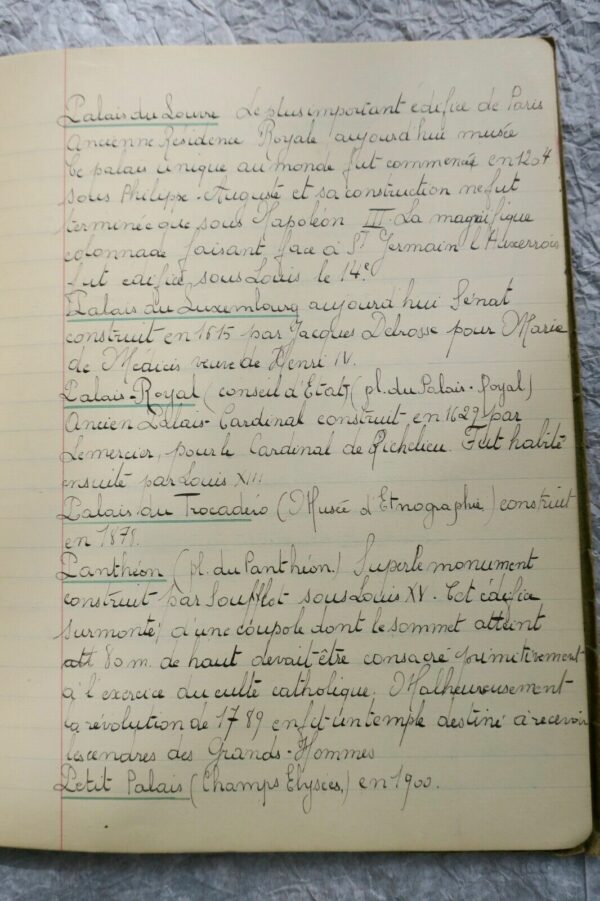 Palais du Louvre Le plus important édifice de Paris
Ancienne Résidence Royale aujourd'hui musée
Ce palais unique au monde fut commencée en 1204
sous Philippe-Auguste et sa construction ne fut
terminée que sous Napoléon III. La magnifique
colonnade faisant face à St Germain l'Auxerrois
fut édifiée sous Louis le 14e.
Palais du Luxembourg aujourd'hui Sénat
construit en 1615 par Jacques Debrosse pour Marie
de Médicis veuve de Henri IV.
Palais-Royal (conseil d'Etat) (pl. du Palais-Royal)
Ancien Palais-Cardinal construit en 1629 par
Lemercier, pour le Cardinal de Richelieu. Fut habité
ensuite par Louis XIII
Palais du Trocadéro (Musée d'Etnographie) construit
en 1878.
Panthéon (pl. du Panthéon.) Superbe monument
construit par Soufflot sous Louis XV. Cet édifice
surmonté, d'une coupole dont le sommet atteint
80 m. de haut devait être consacré primitivement
à l'exercice du culte catholique. Malheureusement
la révolution de 1789 en fit un temple destiné à recevoir
les cendres des Grands-Hommes
Petit Palais (Champs Elysées,) en 1900.